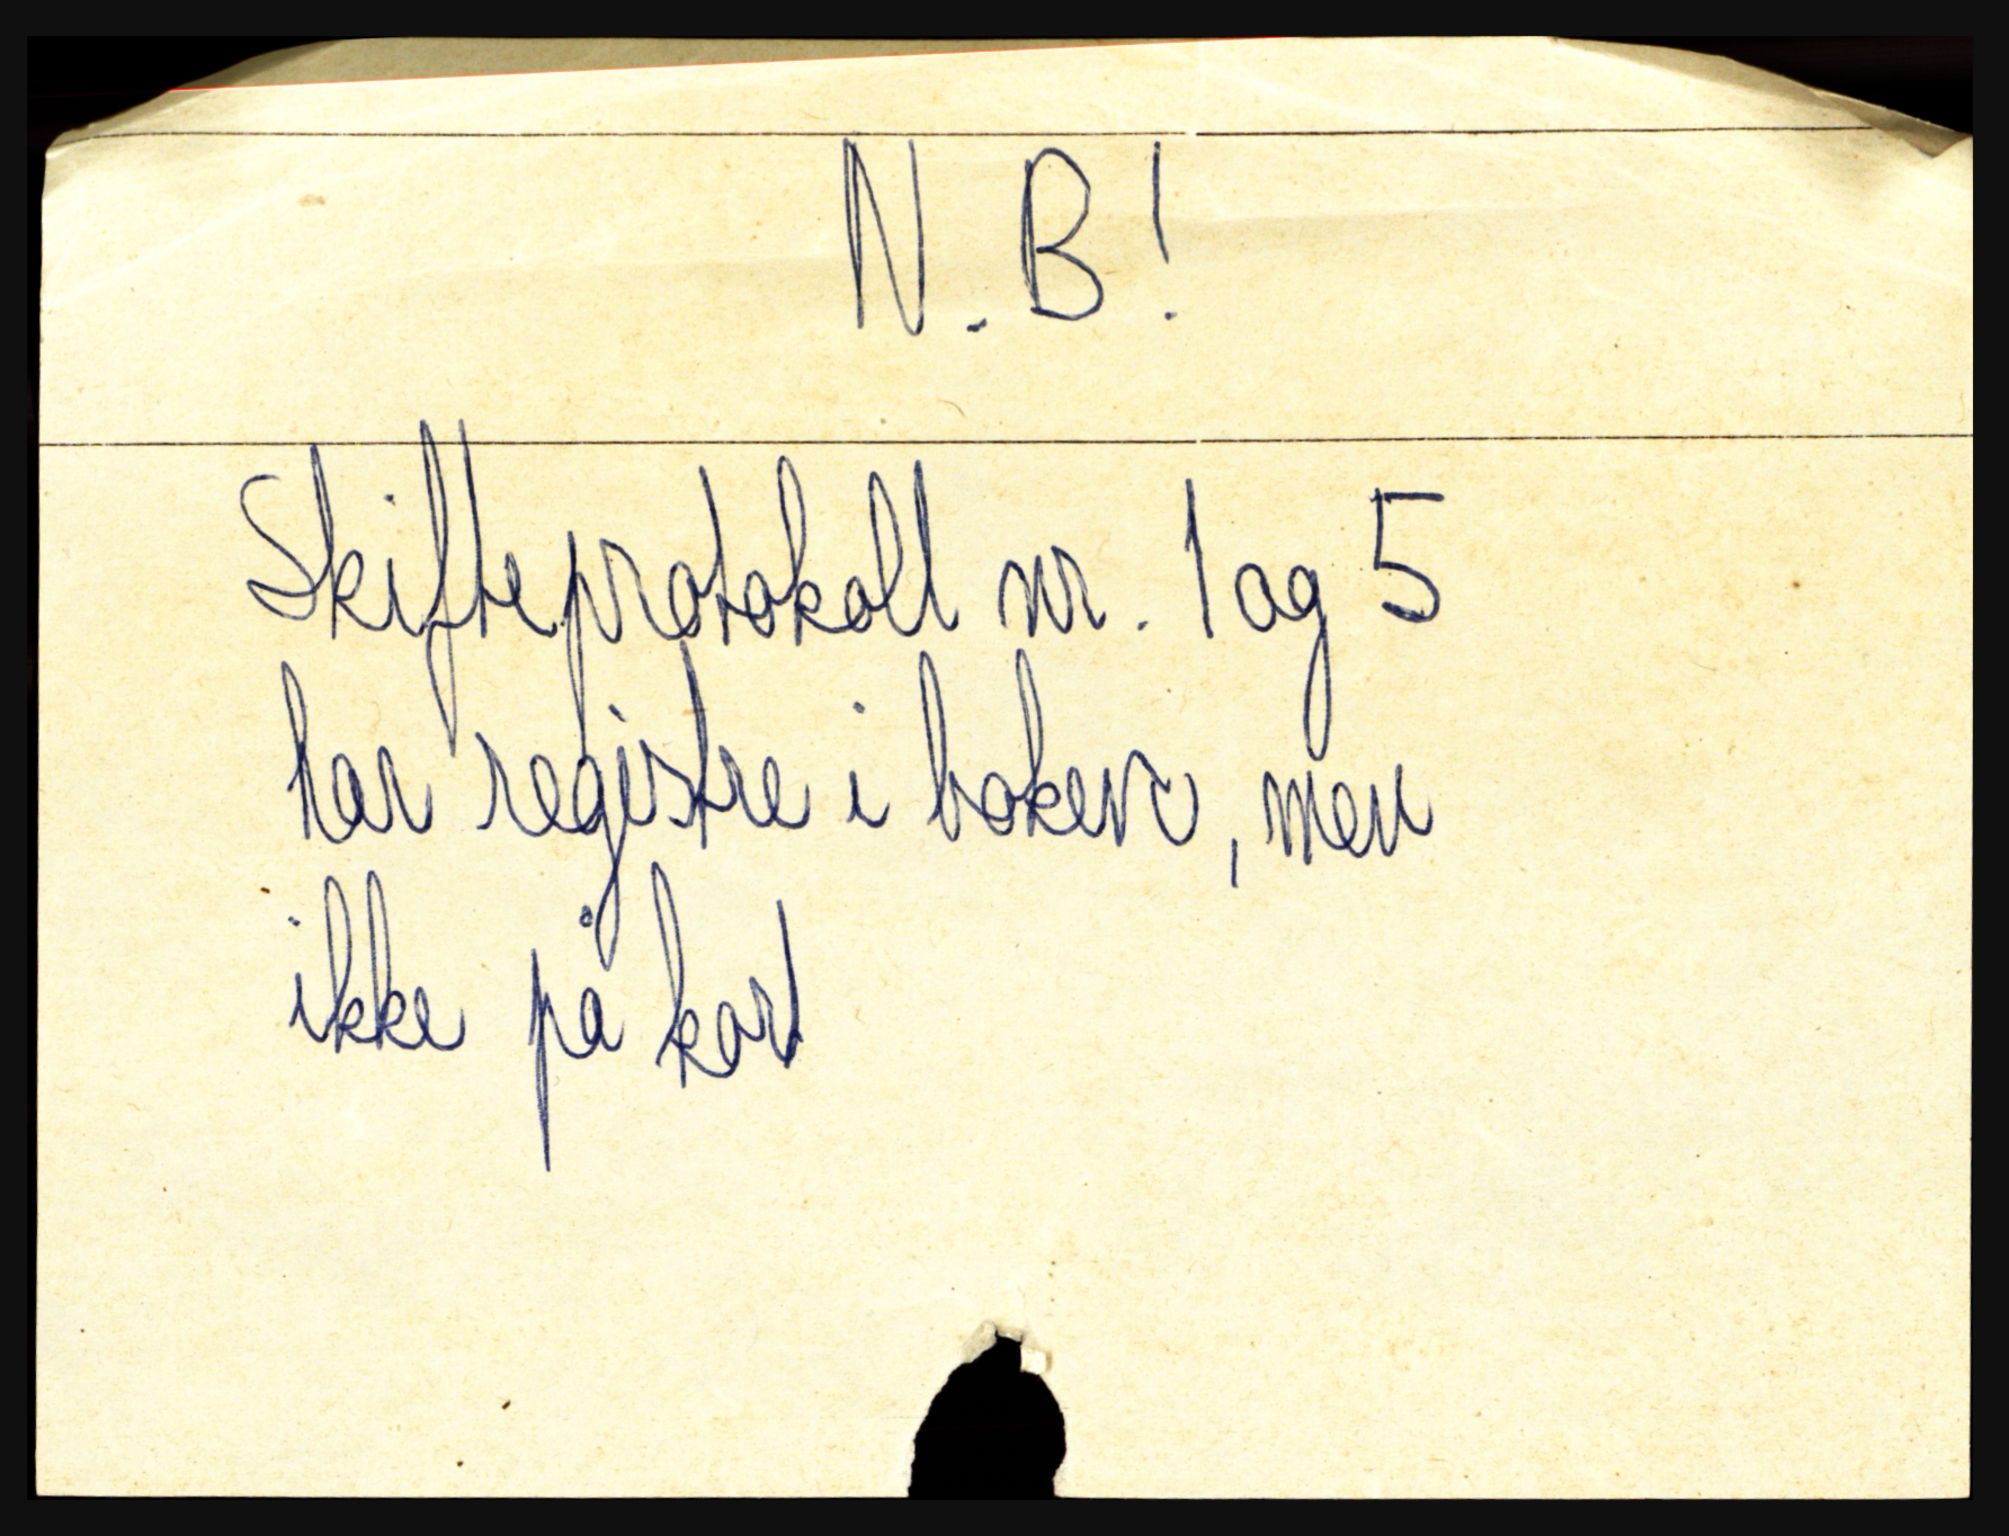 N.B!
Skifteprotokoll nr. 1 og 5
har registre i boken, men
ikke på kort